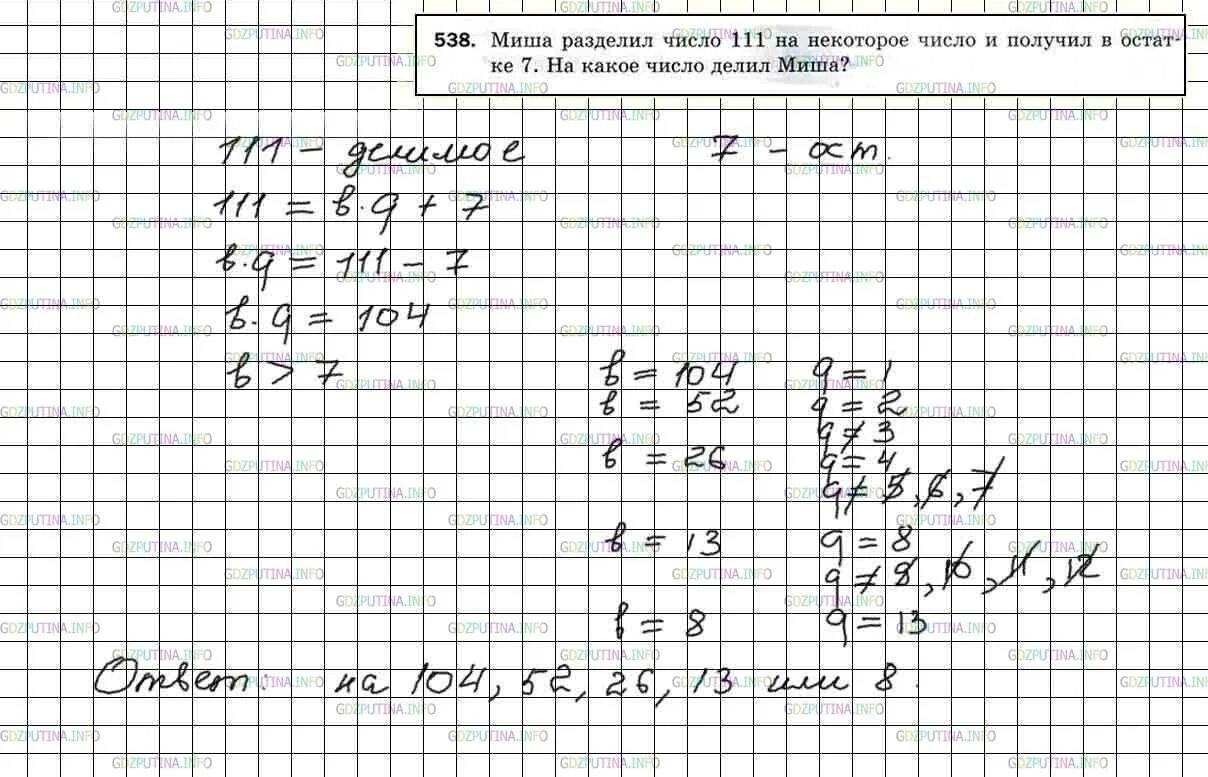 538. Миша разделил число 111 на некоторое число и получил в остат-
ке 7. На какое число делил Миша?
111 – делимое 7 – ост.
111 = в·q + 7
в·q = 111 – 7
в·q = 104
в > 7
в = 104 q = 1
в = 52 q = 2
q ≠ 3
в = 26 q = 4
q ≠ 5, 6, 7
в = 13 q = 8
q ≠ 9, 10, 11, 12
в = 8 q = 13
Ответ: на 104, 52, 26, 13 или 8.
GDZPUTINA.INFO